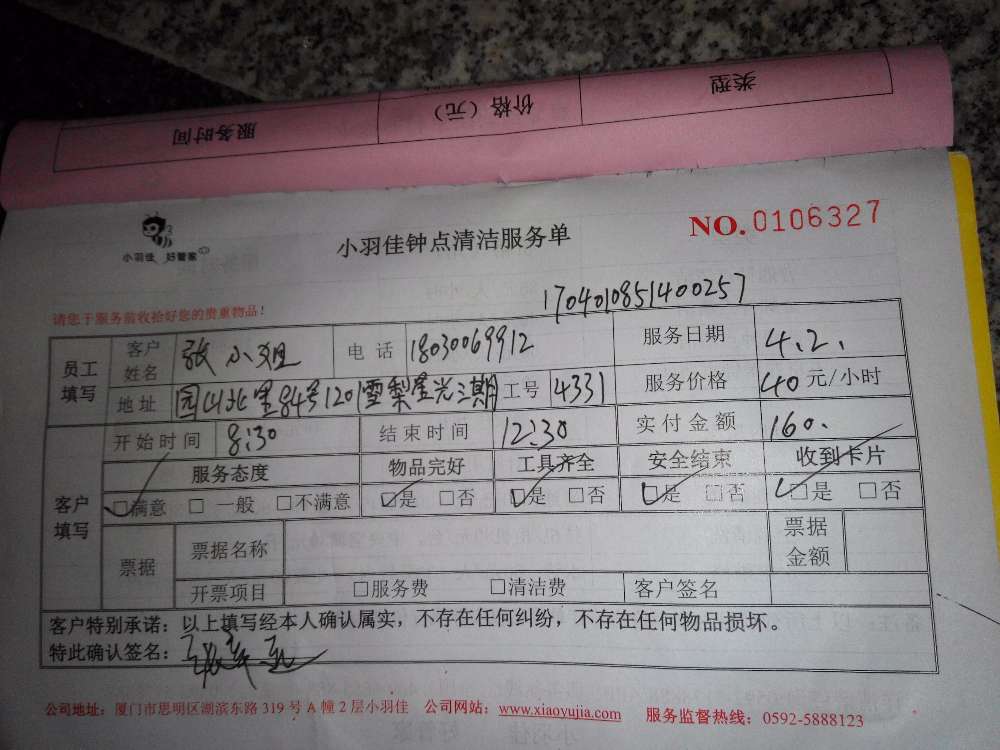 类型 价格（元） 服务时间
小羽佳 好管家
小羽佳钟点清洁服务单
NO.0106327
1704010851400257
请您于服务前收拾好您的贵重物品！
员工填写 客户姓名 张小姐 电话 18030069912 服务日期 4.2.
地址 园山北里84号1201雪梨星光三期 工号 4331 服务价格 40元/小时
客户填写 开始时间 8:30 结束时间 12:30 实付金额 160.
服务态度 物品完好 工具齐全 安全结束 收到卡片
☑满意 □一般 □不满意 ☑是 □否 ☑是 □否 ☑是 □否 ☑是 □否
票据 票据名称 票据金额
开票项目 □服务费 □清洁费 客户签名
客户特别承诺：以上填写经本人确认属实，不存在任何纠纷，不存在任何物品损坏。
特此确认签名：
公司地址：厦门市思明区湖滨东路319号A幢2层小羽佳 公司网站：www.xiaoyujia.com 服务监督热线：0592-5888123